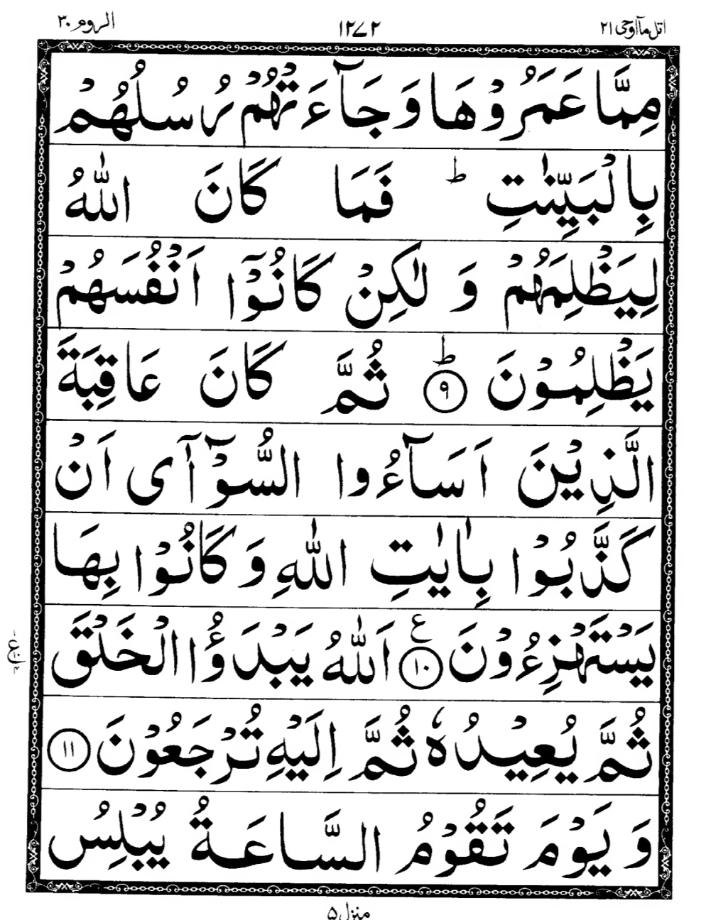 الروم ۳۰ ۱۲۷۲ اتل مآ اوحی ۲۱
مِمَّا عَمَرُوْهَا وَجَآءَتْهُمْ رُسُلُهُمْ
بِالْبَيِّنٰتِ ؕ فَمَا كَانَ اللّٰهُ
لِيَظْلِمَهُمْ وَ لٰكِنْ كَانُوْۤا اَنْفُسَهُمْ
يَظْلِمُوْنَ ؕ ۹ ثُمَّ كَانَ عَاقِبَةَ
الَّذِيْنَ اَسَآءُوا السُّوْٓاٰۤى اَنْ
كَذَّبُوْا بِاٰيٰتِ اللّٰهِ وَكَانُوْا بِهَا
يَسْتَهْزِءُوْنَ ع ۱۰ اَللّٰهُ يَبْدَؤُا الْخَلْقَ
ثُمَّ يُعِيْدُهٗ ثُمَّ اِلَيْهِ تُرْجَعُوْنَ ۱۱
وَ يَوْمَ تَقُوْمُ السَّاعَةُ يُبْلِسُ
منزل ۵